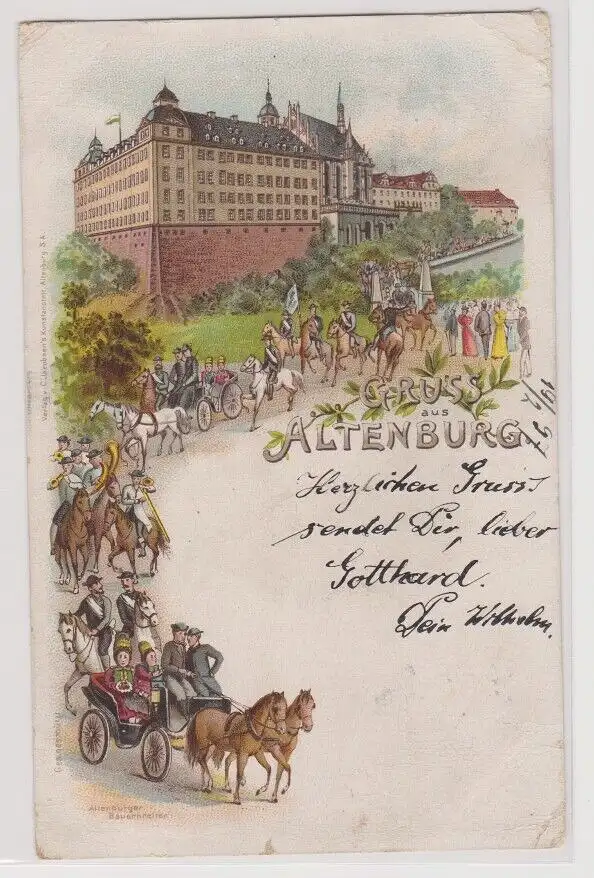 GRUSS
aus
ALTENBURG
Herzlichen Gruss
sendet Dir, lieber
Gotthard.
Dein Wilhelm.
Altenburger
Bauernreiter